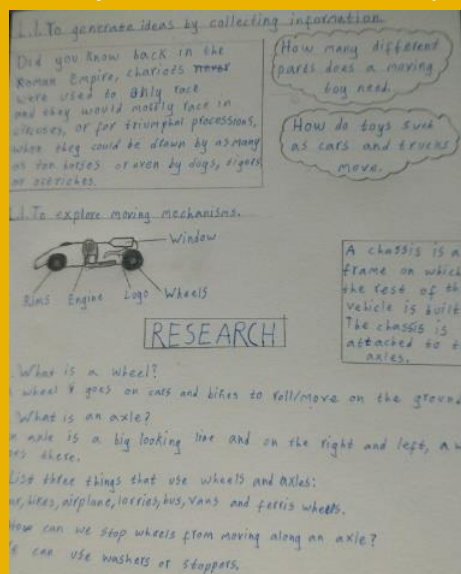 L.I. To generate ideas by collecting information.
Did you know back in the
Roman Empire, chariots never
were used to only race
and they would mostly race in
circuses, or for triumphal processions,
when they could be drawn by as many
as ten horses or even by dogs, tigers
or ostriches.
How many different
parts does a moving
toy need.
How do toys such
as cars and trucks
move.
L.I. To explore moving mechanisms.
Window
Rims Engine Logo Wheels
A chassis is a
frame on which
the rest of th
vehicle is built
The chassis is
attached to t
axles.
RESEARCH
What is a wheel?
wheel goes on cars and bikes to roll/move on the ground
What is an axle?
n axle is a big looking line and on the right and left, a w
es there.
List three things that use wheels and axles:
ar, bikes, airplane, lorries, bus, vans and ferris wheels.
How can we stop wheels from moving along an axle?
e can use washers or stoppers.